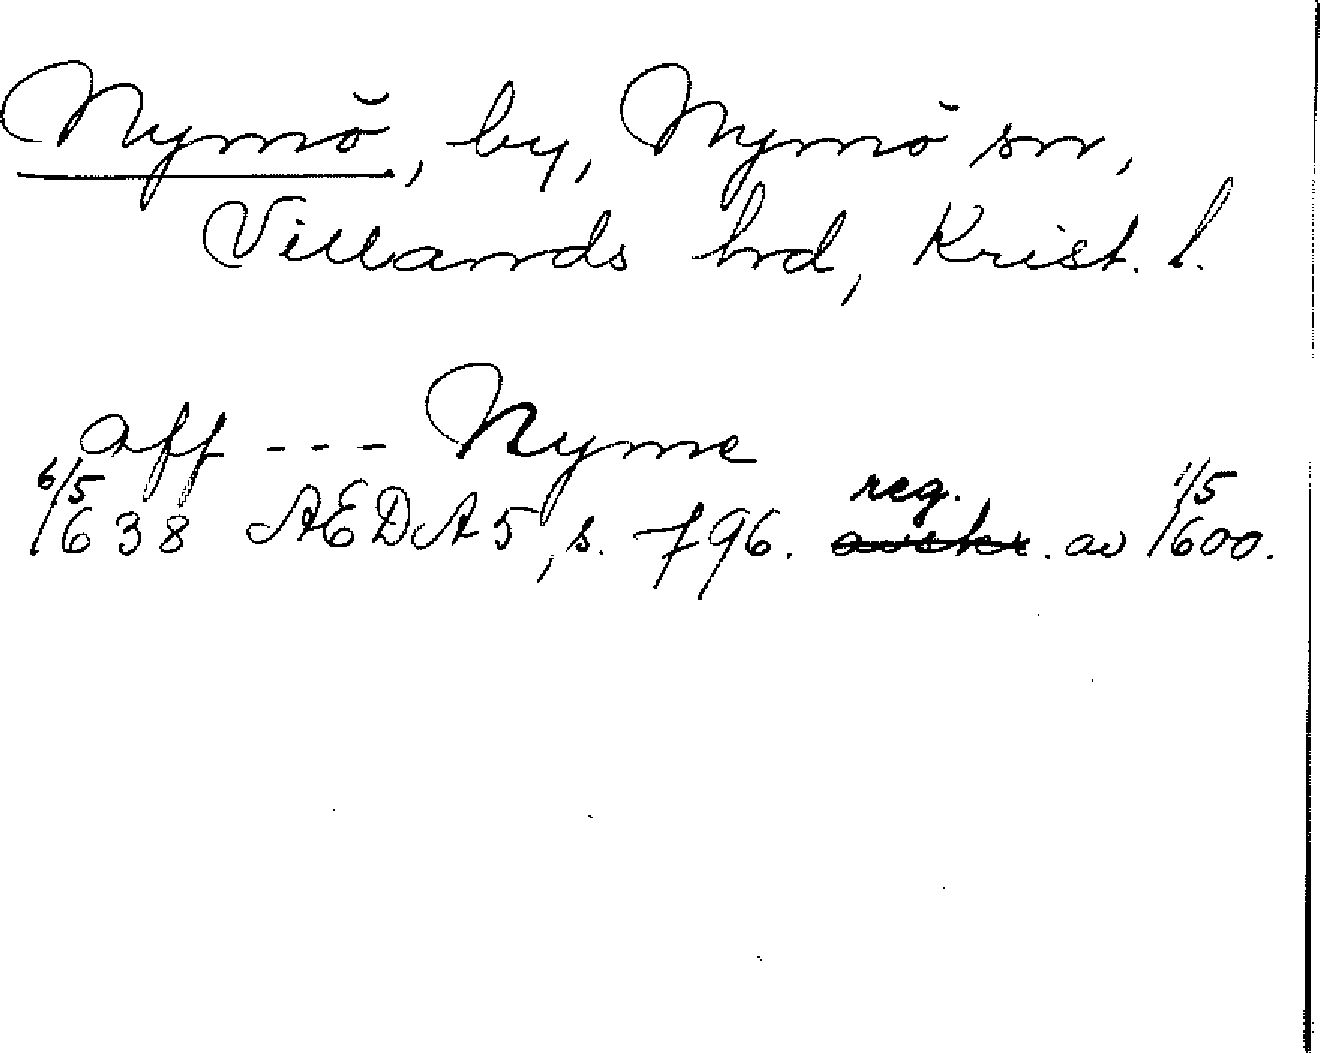 Nymö, by, Nymö sn,
Villands hd, Krist. l.
aff --- Nyme
6/5 1638 AEDA 5, s. 796. reg. avskr. av 1/5 1600.